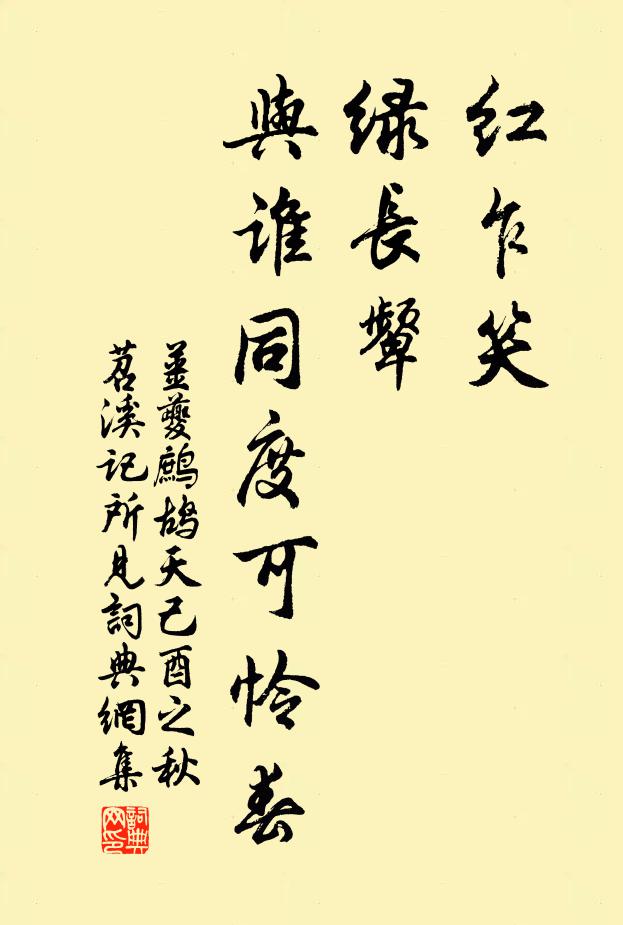 紅乍笑
綠長顰
與誰同度可怜春
姜夔鷓鴣天己酉之秋
苕溪記所見詞典網集
詞典網印